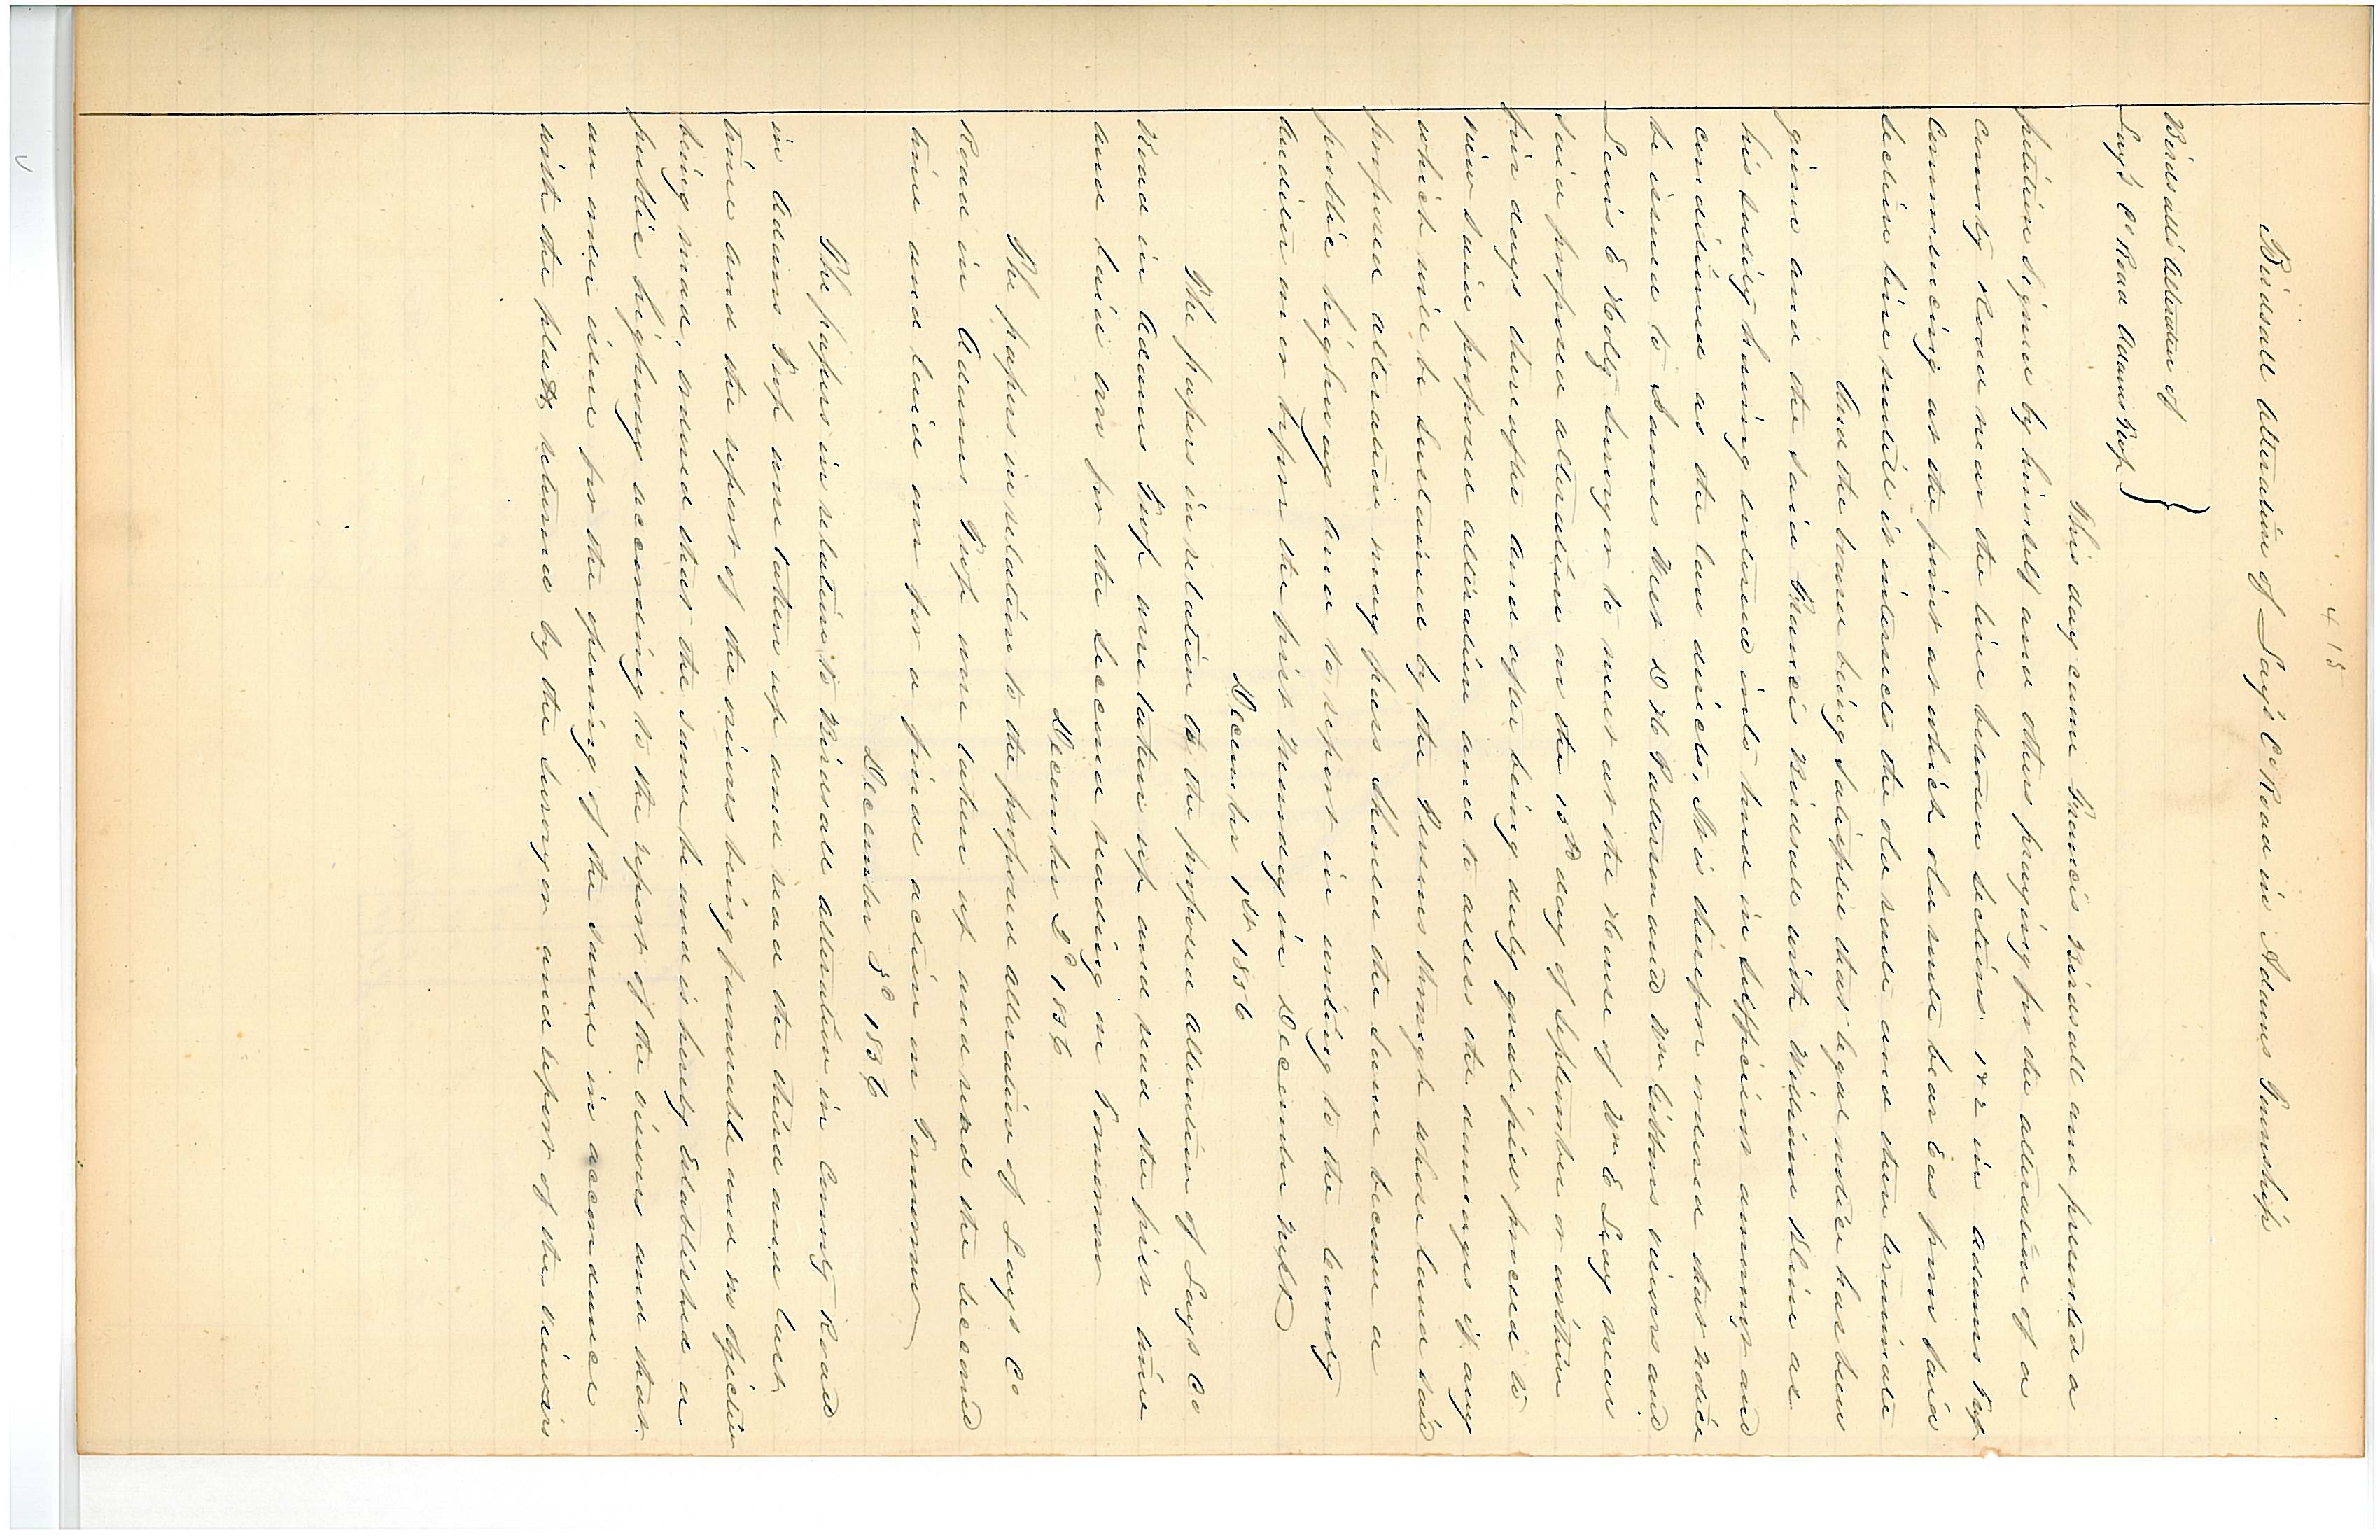 415
Birdsall Alteration of Lay's Co Road in Adams Township
Birdsalls Alteration of
Lay's Co Road Adams Twp
This day came Francis Birdsall and presented a
petition signed by himself and others praying for the alteration of a
County Road near the line between Sections 1 & 2 in Adams Twp
Commencing at the point at which the route bears East from said
Section line until it intersects the old route and there terminate
And the board being satisfied that legal notice has been
given and the said Francis Birdsall with William Kline as
his surety having entered into bond in sufficient amount and
conditioned as the law directs, It is therefore ordered that notice
be issued to James West D H Patterson and Wm Gibbons viewers and
Lewis E Holtz Surveyor to meet at the House of Wm E Lay near
said proposed alteration on the 15th day of September or within
five days thereafter and after being duly qualified proceed to
view said proposed alteration and to assess the damages if any
which will be sustained by the Persons through whose land said
proposed alteration may pass should the same become a
public highway and to report in writing to the County
Auditor on or before the first Monday in December next
December 1st 1856
The papers in relation to the proposed alteration of Lays Co
Road in Adams Twp were taken up and read the first time
and laid over for the Second reading on tomorrow
December 2d 1856
The papers in relation to the proposed alteration of Lays Co
Road in Adams Twp were taken up and read the second
time and laid over for a final action on tomorrow
December 3d 1856
The papers in relation to Birdsall alteration in County Road
in Adams Twp were taken up and read the third and last
time and the report of the viewers being favorable and no objection
being made, ordered that the same be and is hereby Established a
public highway according to the report of the viewers and that
an order issue for the opening of the same in accordance
with the platt returned by the surveyor and report of the viewers